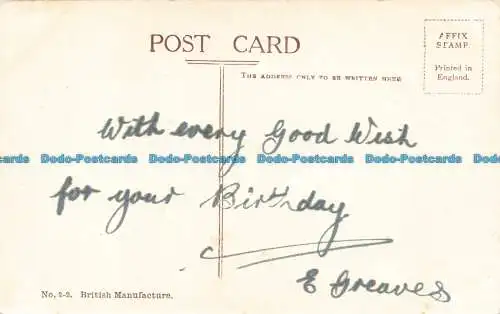 POST CARD
AFFIX
STAMP.
Printed in
England.
THE ADDRESS ONLY TO BE WRITTEN HERE
With every Good Wish
Dodo-Postcards Dodo-Postcards Dodo-Postcards Dodo-Postcards Dodo-Postcards
for your Birthday
E Greaves
No. 2-2. British Manufacture.